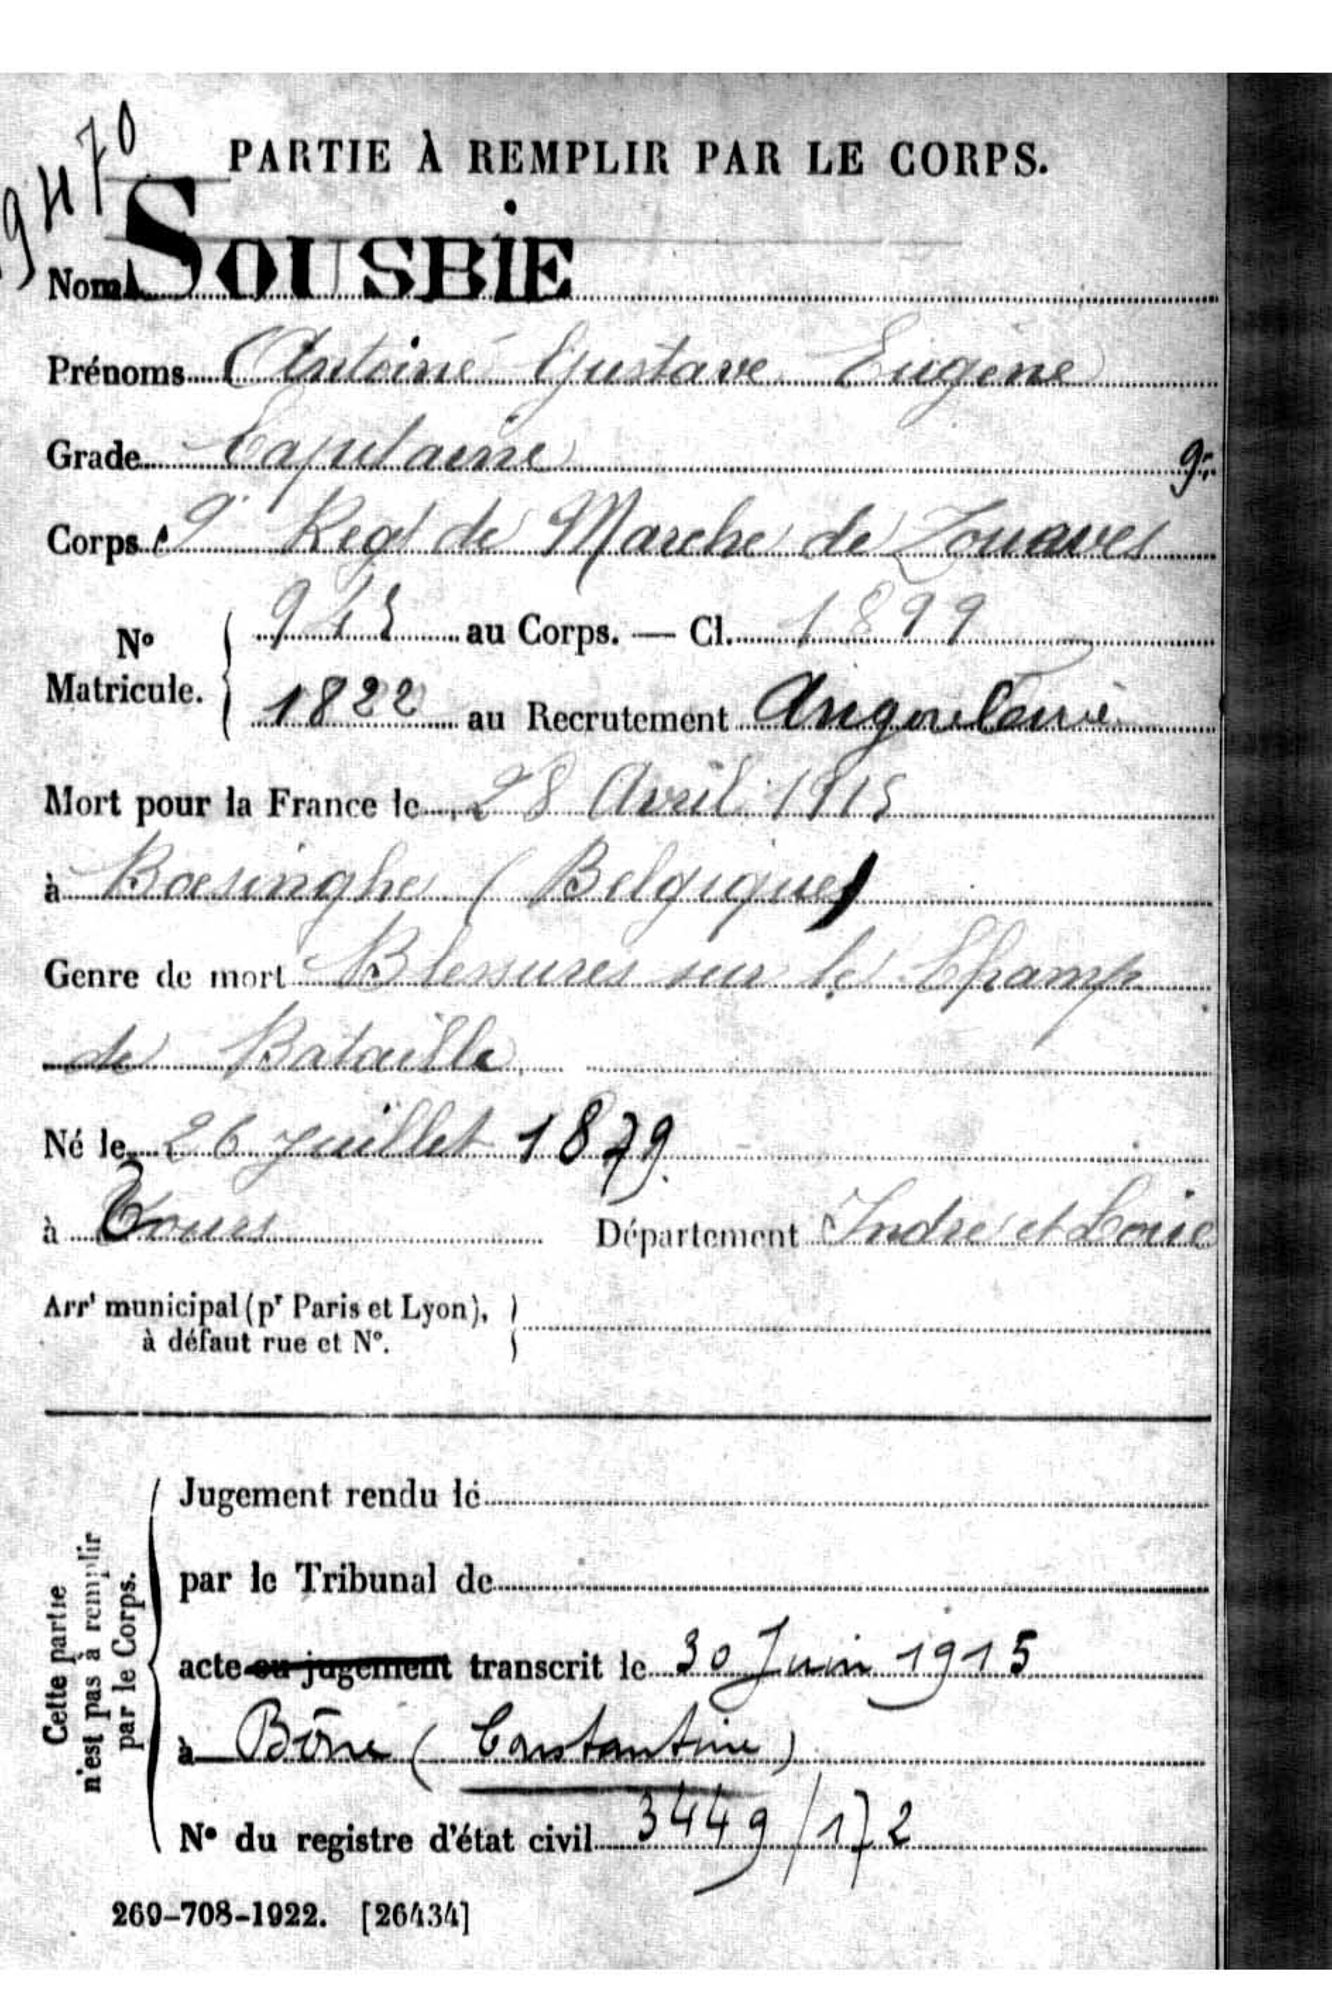 9470
PARTIE À REMPLIR PAR LE CORPS.
Nom SOUSBIE
Prénoms Antoine Gustave Eugène
Grade Capitaine
Corps 9e Regt de Marche de Zouaves
No Matricule. 945 au Corps. — Cl. 1899
1822 au Recrutement Angoulême
Mort pour la France le 28 Avril 1915
à Boesinghe (Belgique)
Genre de mort Blessures sur le Champ
de Bataille
Né le 26 Juillet 1879.
à Tours Département Indre et Loire
Arrt municipal (pr Paris et Lyon),
à défaut rue et No.
Cette partie
n'est pas à remplir
par le Corps.
Jugement rendu le
par le Tribunal de
acte ou jugement transcrit le 30 Juin 1915
à Bône (Constantine)
No du registre d'état civil 3449/172
269-708-1922. [26434]